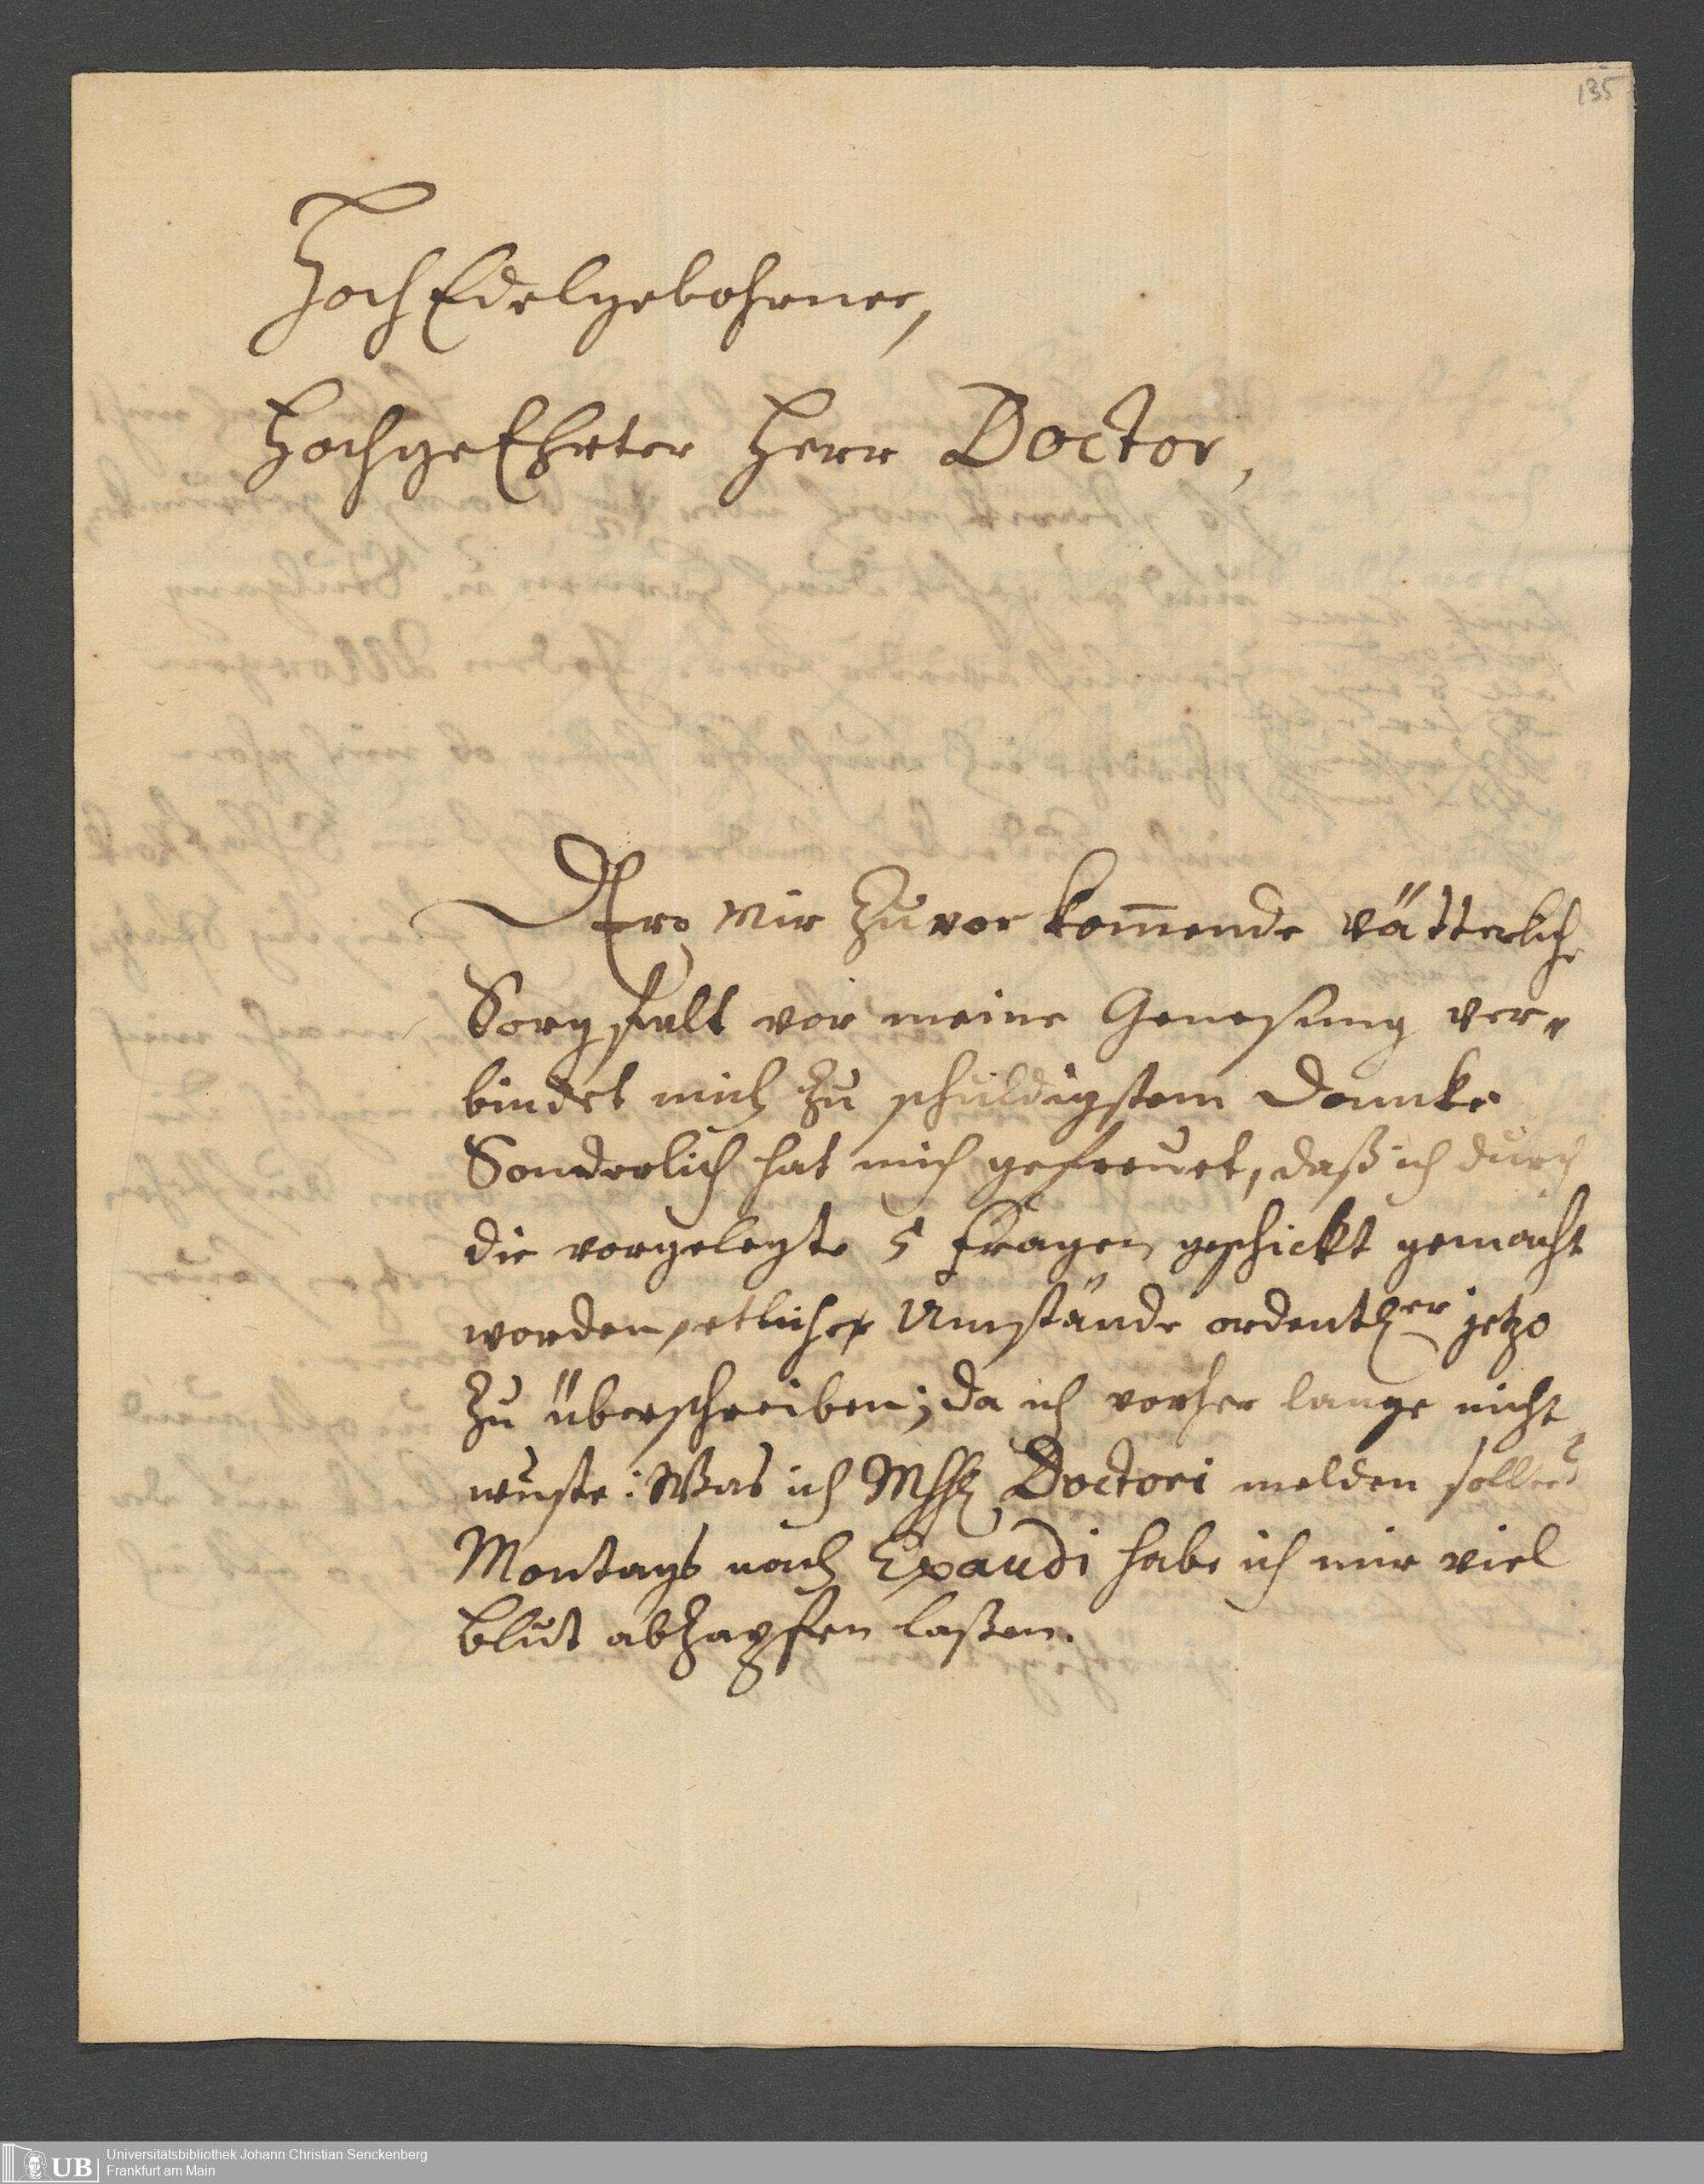 135
HochEdelgebohrner,
HochgeEhrter Herr Doctor,
Dero mir zuvor kom̄ende vätterliche
Sorgfalt vor meine Genesung ver-
bindet mich zu schuldigstem Dancke
Sonderlich hat mich gefreuet, daß ich durch
die vorgelegte 5 Fragen geschickt gemacht
worden, etlicher Umstände ordentl.er jetzo
zu überschreiben; da ich vorher lange nicht
wuste: Was ich Doctori melden sollte
Montags nach Exaudi habe ich mir viel
Blut abzapfen laßen.
UB
Universitätsbibliothek Johann Christian Senckenberg
Frankfurt am Main